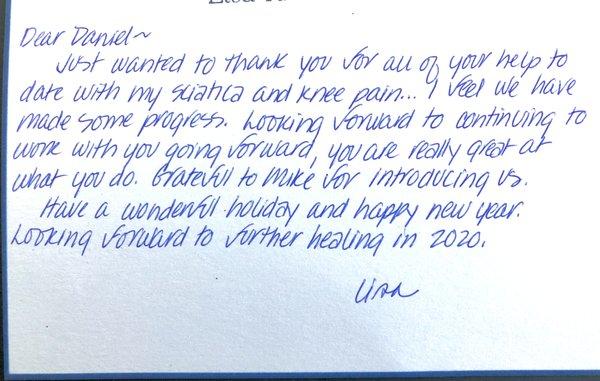 Dear Daniel~
Just wanted to thank you for all of your help to
date with my sciatica and knee pain... I feel we have
made some progress. Looking forward to continuing to
work with you going forward, you are really great at
what you do. Grateful to Mike for introducing us.
Have a wonderful holiday and happy new year.
Looking forward to further healing in 2020.
Lisa